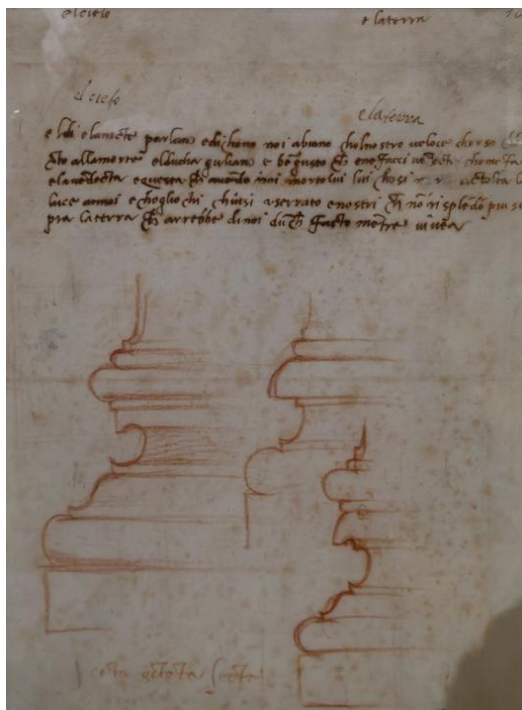 el cielo e la terra
el cielo e la terra
e ldi e lanocte parlano e dichono noi abiano cholnostro veloce chorso
docto allamorte elducha guliano e be gusto ch ene facci ve decta chome fa
e lave decta e questa ch avendo noi morto lui lui chosi a tolta la
luce annoi e choglio chi chiusi a serrato e nostri ch no ri sple do piu so
pra la terra ch arrebbe di noi du ch facto me tre vivea